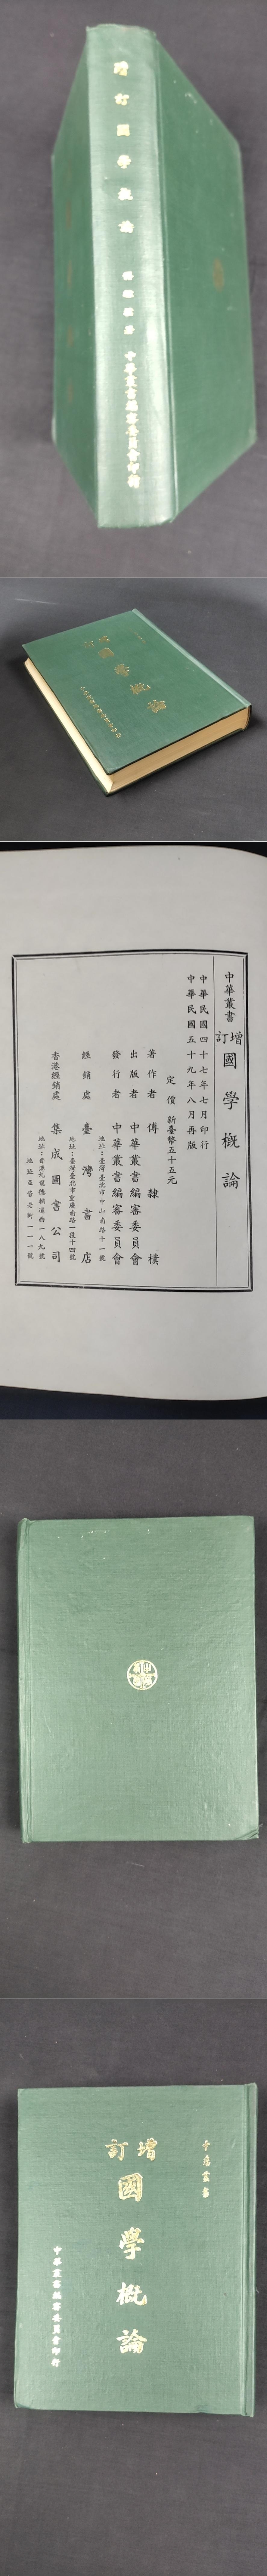 增訂國學概論
傅隸樸著
中華叢書編審委員會印行
國學概論
中華叢書
增訂國學概論
中華民國四十七年七月印行
中華民國五十九年八月再版
定價 新臺幣五十五元
著作者 傅隸樸
出版者 中華叢書編審委員會
發行者 中華叢書編審委員會
地址:臺灣臺北市中山南路十一號
經銷處 臺灣書店
地址:臺灣臺北市重慶南路一段十四號
香港經銷處 集成圖書公司
地址:香港九龍德輔道西一八九號
中華叢書
增訂
國學概論
中華叢書編審委員會印行